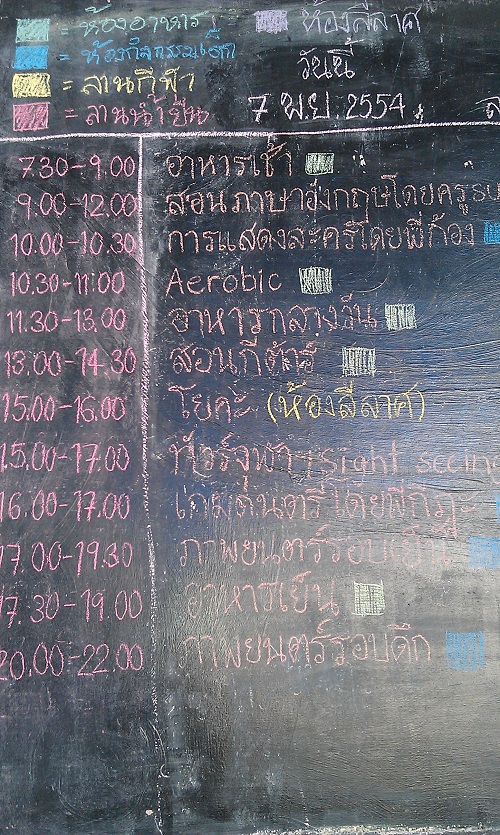 = ห้องอาหาร ห้องลีลาศ
= ห้องกิจกรรมเด็ก
= ลานกีฬา วันนี้
= ลานน้ำยืน 7 พ.ย. 2554
7.30-9.00 อาหารเช้า
9.00-12.00 สอนภาษาอังกฤษโดยครู
10.00-10.30 การแสดงละครโดยพี่ก้อง
10.30-11:00 Aerobic
11.30-13.00 อาหารกลางวัน
13.00-14.30 สอนกีต้าร์
15.00-16.00 โยคะ (ห้องลีลาศ)
15.00-17.00 ทัวร์จุฬาฯ Sight seeing
16.00-17.00 เกมดนตรีโดย
17.00-19.30 ภาพยนตร์รอบเย็น
17.30-19.00 อาหารเย็น
20.00-22.00 ภาพยนตร์รอบดึก